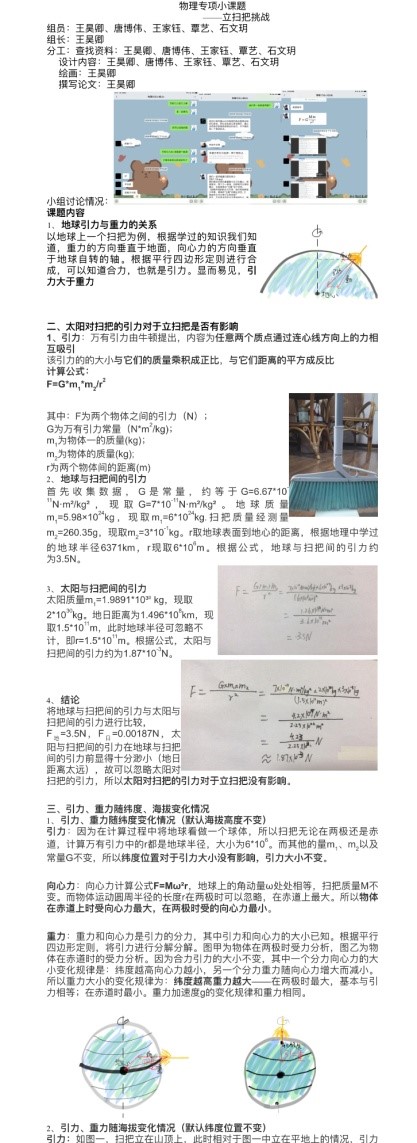 物理专项小课题
——立扫把挑战
组员：王昊卿、唐博伟、王家钰、覃艺、石文玥
组长：王昊卿
分工：查找资料：王昊卿、唐博伟、王家钰、覃艺、石文玥
设计内容：王昊卿、唐博伟、王家钰、覃艺、石文玥
绘画：王昊卿
撰写论文：王昊卿
小组讨论情况：
课题内容
1、地球引力与重力的关系
以地球上一个扫把为例，根据学过的知识我们知
道，重力的方向垂直于地面，向心力的方向垂直
于地球自转的轴。根据平行四边形定则进行合
成，可以知道合力，也就是引力。显而易见，引
力大于重力
二、太阳对扫把的引力对于立扫把是否有影响
1、引力：万有引力由牛顿提出，内容为任意两个质点通过连心线方向上的力相
互吸引
该引力的的大小与它们的质量乘积成正比，与它们距离的平方成反比
计算公式：
F=G*m₁*m₂/r²
其中：F为两个物体之间的引力（N）；
G为万有引力常量（N*m²/kg)；
m₁为物体一的质量(kg)；
m₂为物体二的质量(kg)；
r为两个物体间的距离(m)
2、地球与扫把间的引力
首先收集数据，G是常量，约等于G=6.67*10⁻
¹¹N·m²/kg²，现取G=7*10⁻¹¹N·m²/kg²。地球质量
m₁=5.98×10²⁴kg，现取m₁=6*10²⁴kg.扫把质量经测量
m₂=260.35g，现取m₂=3*10⁻¹kg。r取地球表面到地心的距离，根据地理中学过
的地球半径6371km，r现取6*10⁶m。根据公式，地球与扫把间的引力约
为3.5N。
3、太阳与扫把间的引力
太阳质量m₁=1.9891*10³⁰ kg，现取
2*10³⁰kg。地日距离为1.496*10⁸km，现
取1.5*10¹¹m，此时地球半径可忽略不
计，即r=1.5*10¹¹m。根据公式，太阳与
扫把间的引力约为1.87*10⁻³N。
4、结论
将地球与扫把间的引力与太阳与
扫把间的引力进行比较，
F地=3.5N，F日=0.00187N，太
阳与扫把间的引力在地球与扫把
间的引力前显得十分渺小（地日
距离太远），故可以忽略太阳对
扫把的引力，所以太阳对扫把的引力对于立扫把没有影响。
三、引力、重力随纬度、海拔变化情况
1、引力、重力随纬度变化情况（默认海拔高度不变）
引力：因为在计算过程中将地球看做一个球体，所以扫把无论在两极还是赤
道，计算万有引力中的r都是地球半径，大小为6*10⁶。而其他的量m₁、m₂以及
常量G不变，所以纬度位置对于引力大小没有影响，引力大小不变。
向心力：向心力计算公式F=Mω²r，地球上的角动量ω处处相等，扫把质量M不
变。而物体运动圆周半径的长度r在两极时可以忽略，在赤道上最大。所以物体
在赤道上时受向心力最大，在两极时受的向心力最小。
重力：重力和向心力是引力的分力，其中引力和向心力的大小已知。根据平行
四边形定则，将引力进行分解分解。图甲为物体在两极时受力分析，图乙为物
体在赤道时的受力分析。因为合力引力的大小不变，其中一个分力向心力的大
小变化规律是：纬度越高向心力越小，另一个分力重力随向心力增大而减小。
所以重力大小的变化规律为：纬度越高重力越大——在两极时最大，基本与引
力相等；在赤道时最小。重力加速度g的变化规律和重力相同。
2、引力、重力随海拔变化情况（默认纬度位置不变）
引力：如图一，扫把立在山顶上，此时相对于图一中立在平地上的情况，引力